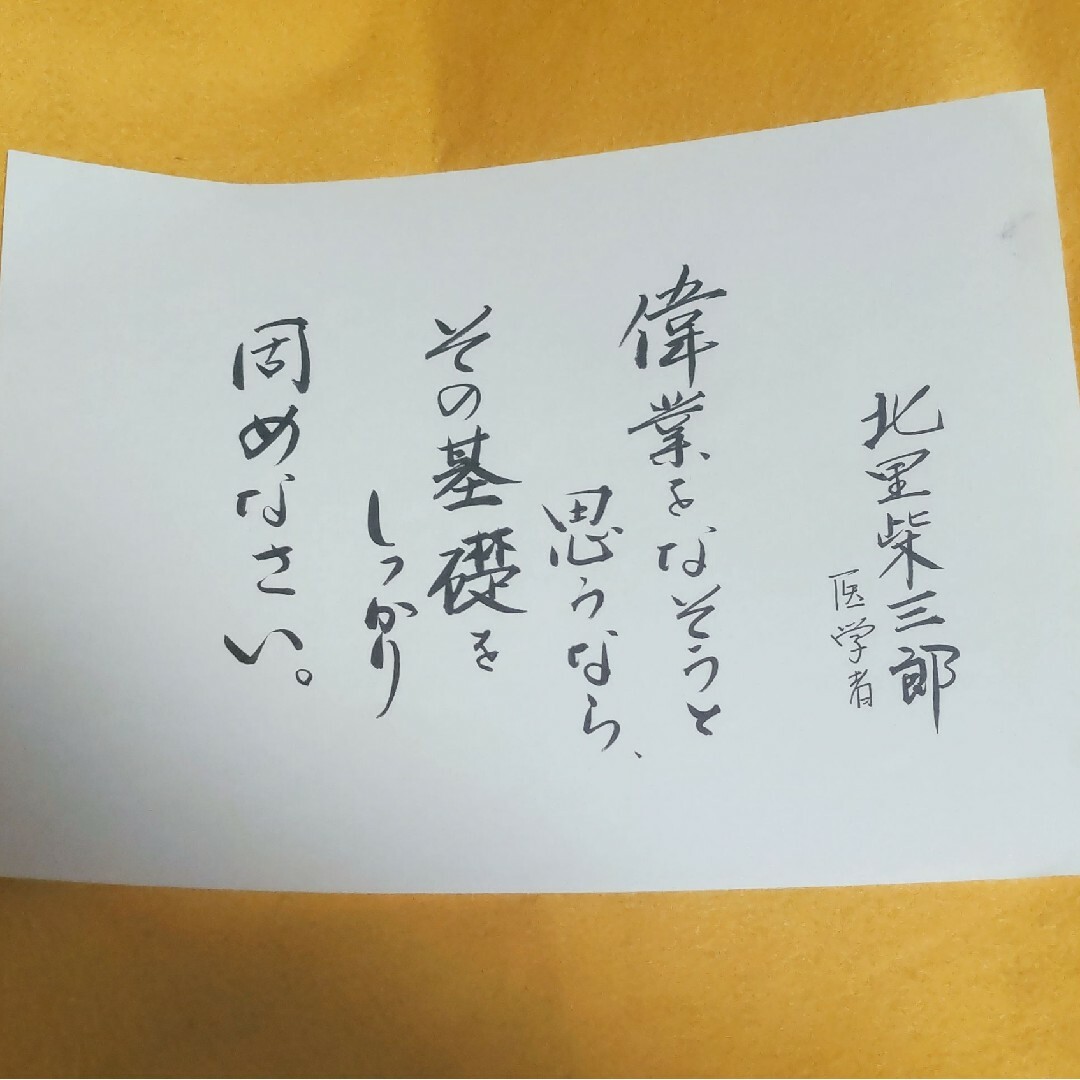 北里柴三郎
医学者
偉業をなそうと
思うなら、
その基礎を
しっかり
固めなさい。